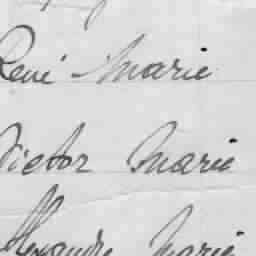 René Marie
Victor Marie
Alexandre Marie